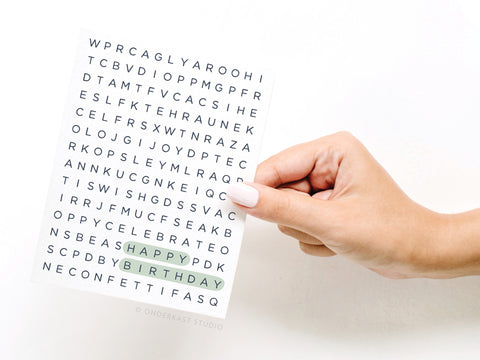 WPRCAGLYAROOHI
TCBVDIOPPMGPFR
DTAMTFVCACSIHE
ESLFKTEHRAUNEK
CELFRSXWTNRAZA
OLOJGIJOYDPTEC
RKOPSLEYMLRAQ
ANNKUCGNKEIQC
TISWISHGDSSVAC
IRRJFMUCFSEAKB
OPPYCELEBRATEO
NSBEASHAPPYPDK
SCPDBYBIRTHDAY
NECONFETTIFASQ
© ONDERKAST STUDIO